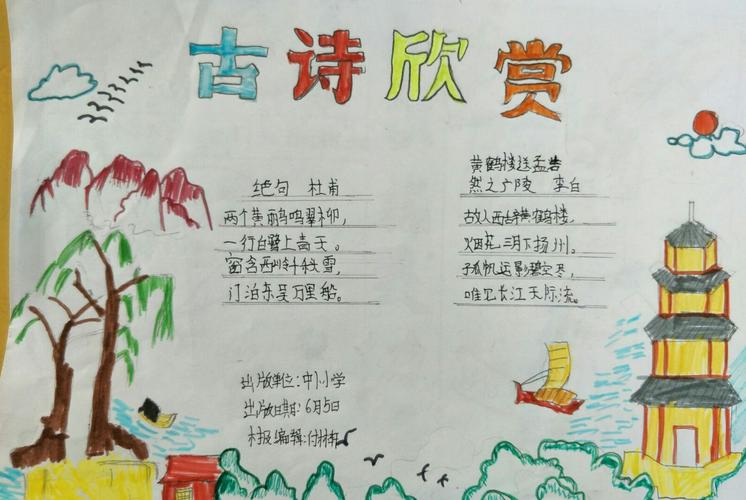 古诗欣赏
绝句 杜甫
两个黄鹂鸣翠柳，
一行白鹭上高天。
窗含西岭千秋雪，
门泊东吴万里船。
黄鹤楼送孟浩
然之广陵 李白
故人西辞黄鹤楼，
烟花三月下扬州。
孤帆远影碧空尽，
唯见长江天际流。
出版单位：中小学
出版日期：6月5日
本报编辑：付